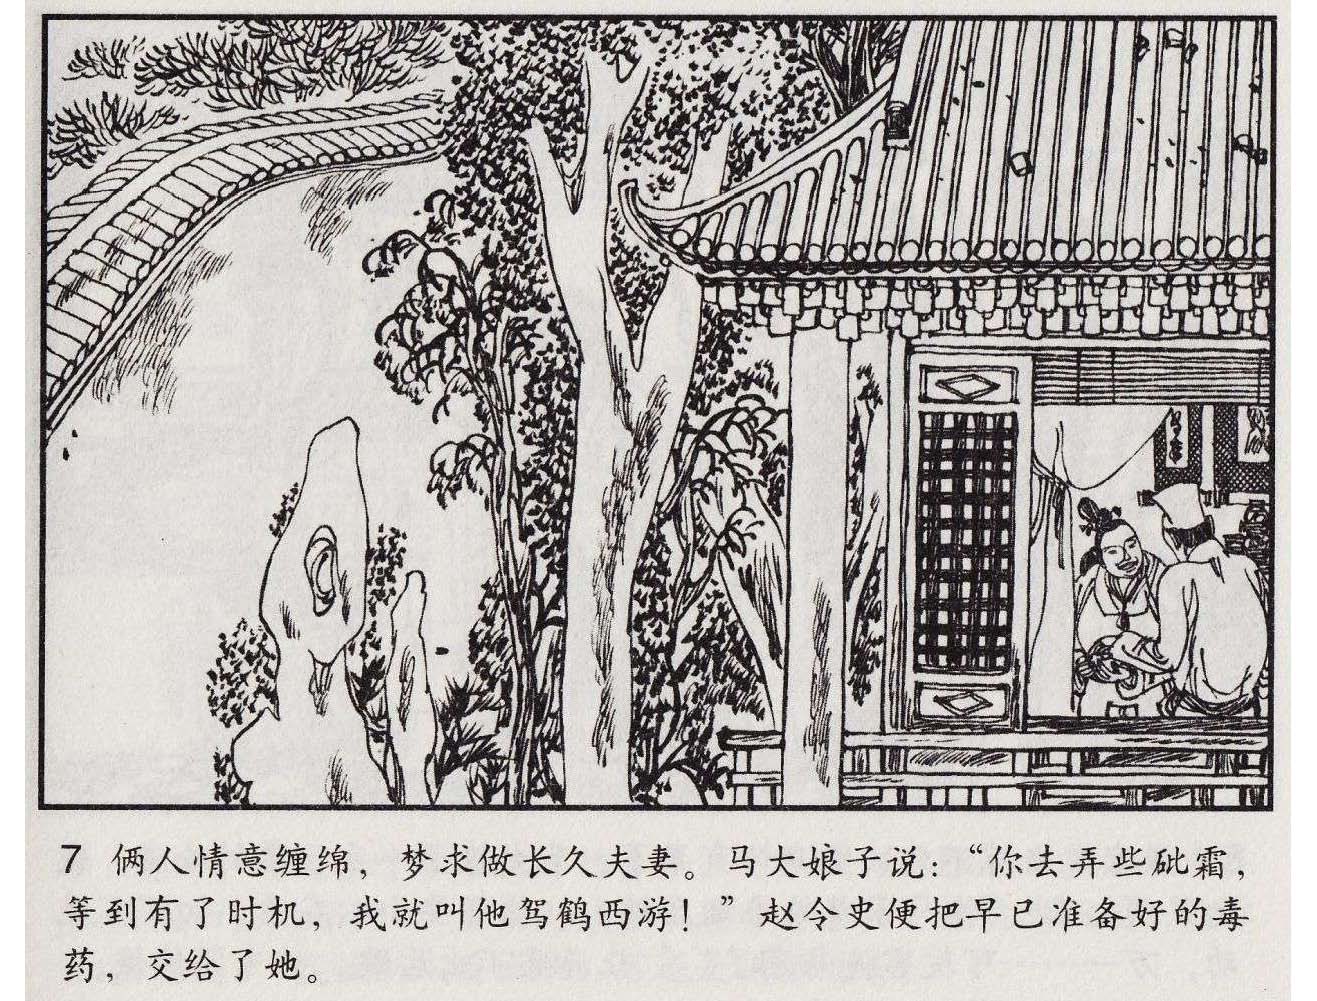 7 俩人情意缠绵，梦求做长久夫妻。马大娘子说：“你去弄些砒霜，
等到有了时机，我就叫他驾鹤西游！”赵令史便把早已准备好的毒
药，交给了她。